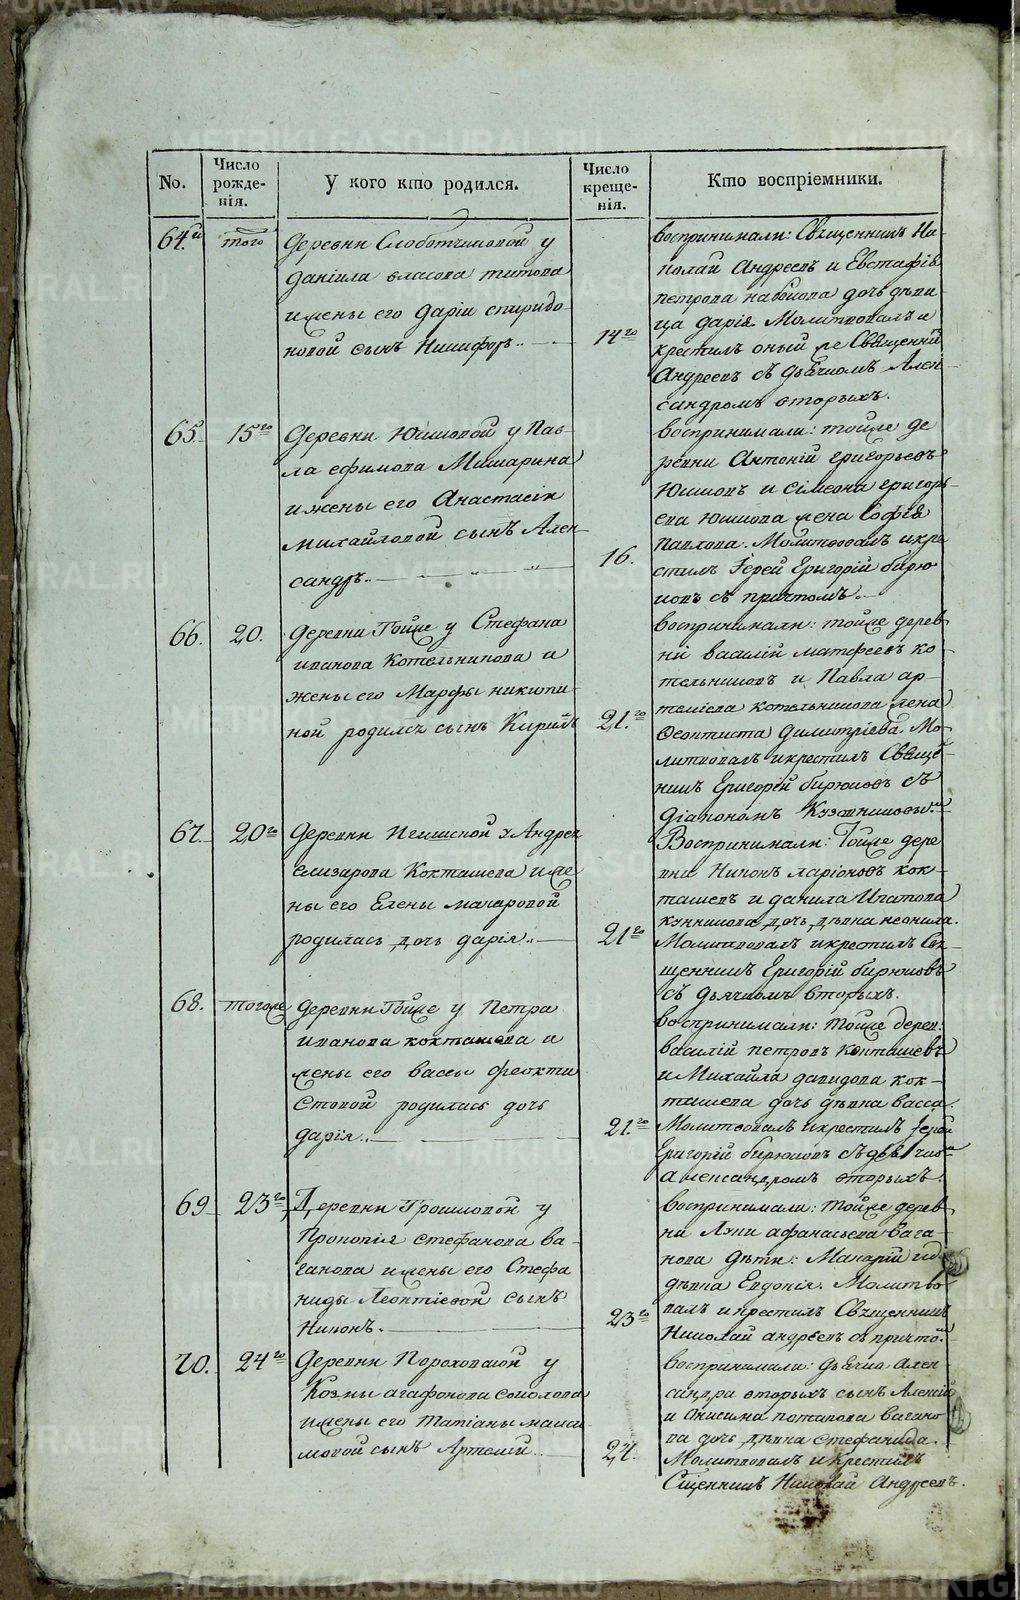 No.
Число рожде-
нія.
У кого кто родился.
Число креще-
нія.
Кто воспріемники.
64.го
того
деревни Слободчиковой у
даніила власова титова
и жены его дарьи спиридо-
новой сынъ Никифоръ..
14го
воспринимали: Священникъ Ни-
колай Андреевъ и Евстафія
петрова дочь дѣви-
ца дарія. Молитвовалъ и
крестилъ оный же Священникъ
Андреевъ съ дьячкомъ Алек-
сандромъ вторыхъ.
65.
15го
деревни Юшковой у Пав-
ла ефимова Мишарина
и жены его Анастасіи
михайловой сынъ Алек-
сандръ..
16.
воспринимали: тойже де
ревни Антоній григорьевъ
Юшковъ и Сімеона григорь-
ева юшкова жена Софія
павлова. Молитвовалъ и кре
стилъ Іерей Григорій бирю
ковъ съ причтомъ.
66.
20.
деревни Тойже у Стефана
иванова Котельникова и
жены его Марфы никити-
ной родился сынъ Кирилъ
21.го
воспринимали: тойже дерев-
ни василій матфеевъ ко-
тельниковъ и Павла ар-
теміева котельникова жена
Феоктиста димитріева. Мо-
литвовалъ и крестилъ Свяще-
нникъ Григорій бирюковъ съ
діакономъ
67.
20го
деревни у Андрея
Елизарова Кокташева и же
ны его Елены макаровой
родилась дочь дарія..
21го
Воспринимали: Тойже дере
вни Никонъ ларіоновъ кок-
ташевъ и данила Ипатова
дочь дѣвка неонила.
Молитвовалъ и крестилъ Свя-
щенникъ Григорій бирюковъ
съ дьячкомъ вторыхъ.
68.
тогоже
деревни Тойже у Петра
иванова кокташева и
жены его вассы феокти
стовой родилась дочь
дарія..
21.го
воспринимали: тойже дерев:
василій петровъ Кокташевъ
и Михайла давидова кок-
ташева дочь дѣвка васса.
Молитвовалъ и крестилъ Іерей
Григорій бирюковъ съ дьячком
александромъ вторыхъ.
69
23го
Деревни Грошловой у
Прокопія стефанова ва-
ганова и жены его Стефа
ниды Леонтіевой сынъ
Никонъ.
23го
воспринимали: тойже дерев
ни Луки афанасьева вага-
нова дѣти: Макарій и
дѣвка Евдокія. Молитво-
валъ и крестилъ Священникъ
Николай андреевъ съ причто.
70.
24го
деревни Пороховской у
Козмы агафонова соколова
и жены его Татіаны макси
мовой сынъ Артемій
24.
воспринимали: дьячка алек-
сандра вторыхъ сынъ Алексій
и Анисима потапова вагано
ва дочь дѣвка стефанида.
Молитвовалъ и крестилъ
Сщенникъ Николай Андреевъ.
METRIKI.GASO-URAL.RU